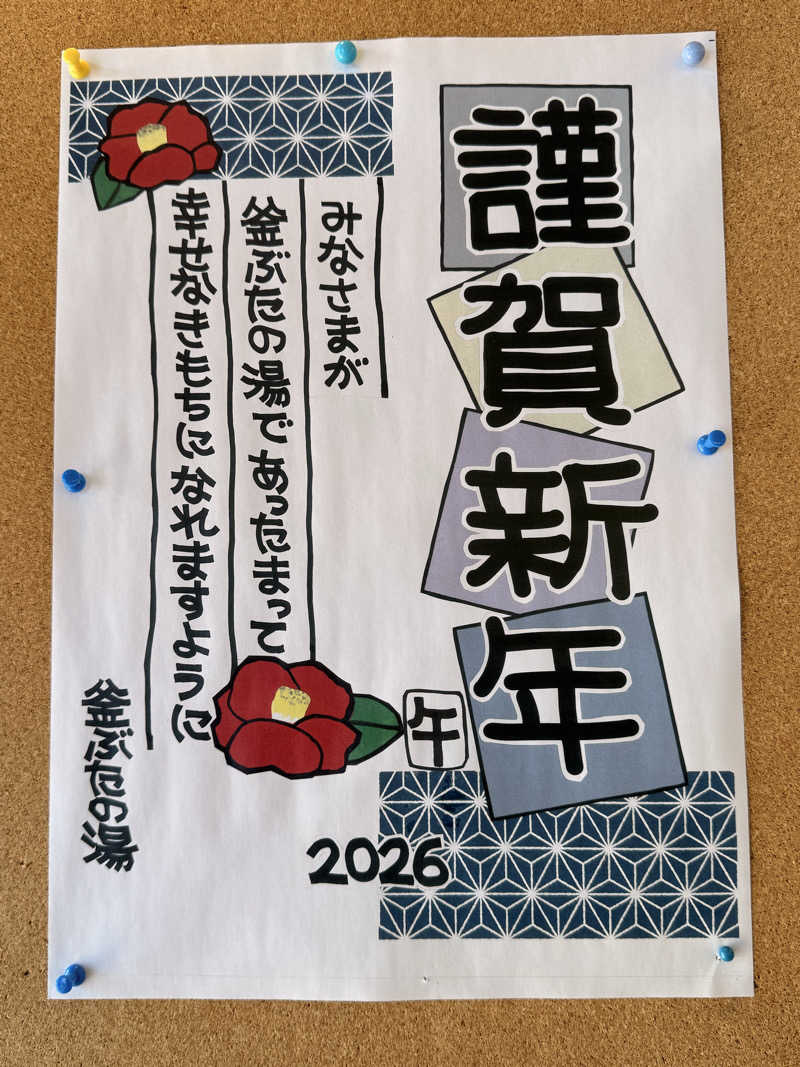 謹賀新年
みなさまが
釜ぶたの湯であったまって
幸せなきもちになれますように
釜ぶたの湯
午
2026